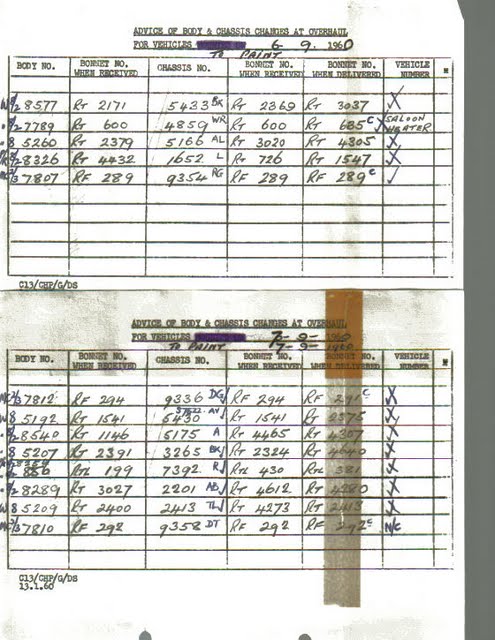 ADVICE OF BODY & CHASSIS CHANGES AT OVERHAUL
FOR VEHICLES 6 - 9. 1960
TO PAINT
BODY NO. BONNET NO. WHEN RECEIVED CHASSIS NO. BONNET NO. WHEN RECEIVED BONNET NO. WHEN DELIVERED VEHICLE NUMBER
8577 RT 2171 5433 BK RT 2369 RT 3037 X
7789 RT 600 4859 WR RT 600 RT 685 C X SALOON HEATER
8 5260 RT 2379 5166 AL RT 3020 RT 4305 X
8326 RT 4432 1652 L RT 726 RT 1547 X
7807 RF 289 9354 RG RF 289 RF 289 C ✓
C13/CHP/G/DS
ADVICE OF BODY & CHASSIS CHANGES AT OVERHAUL
FOR VEHICLES 7 - 9 - 1960
TO PAINT 7 - 9 - 1960
BODY NO. BONNET NO. WHEN RECEIVED CHASSIS NO. BONNET NO. BONNET NO. WHEN DELIVERED VEHICLE NUMBER
7812 RF 294 9336 DG RF 294 RF 291 C X
W8 5192 RT 1541 5430 AV RT 1541 RT 2375 X
8540 RT 1146 5175 A RT 4465 RT 4307 X
8 5207 RT 2391 3265 BK RT 2324 RT 4640 X
RTL 199 7392 RJ RTL 430 RTL 381 X
8289 RT 3027 2201 AB RT 4612 RT 4280 X
W8 5209 RT 2400 2413 TW RT 4273 RT 2413 X
7810 RF 292 9358 DT RF 292 RF 292 C N/C
C13/CHP/G/DS
13.1.60